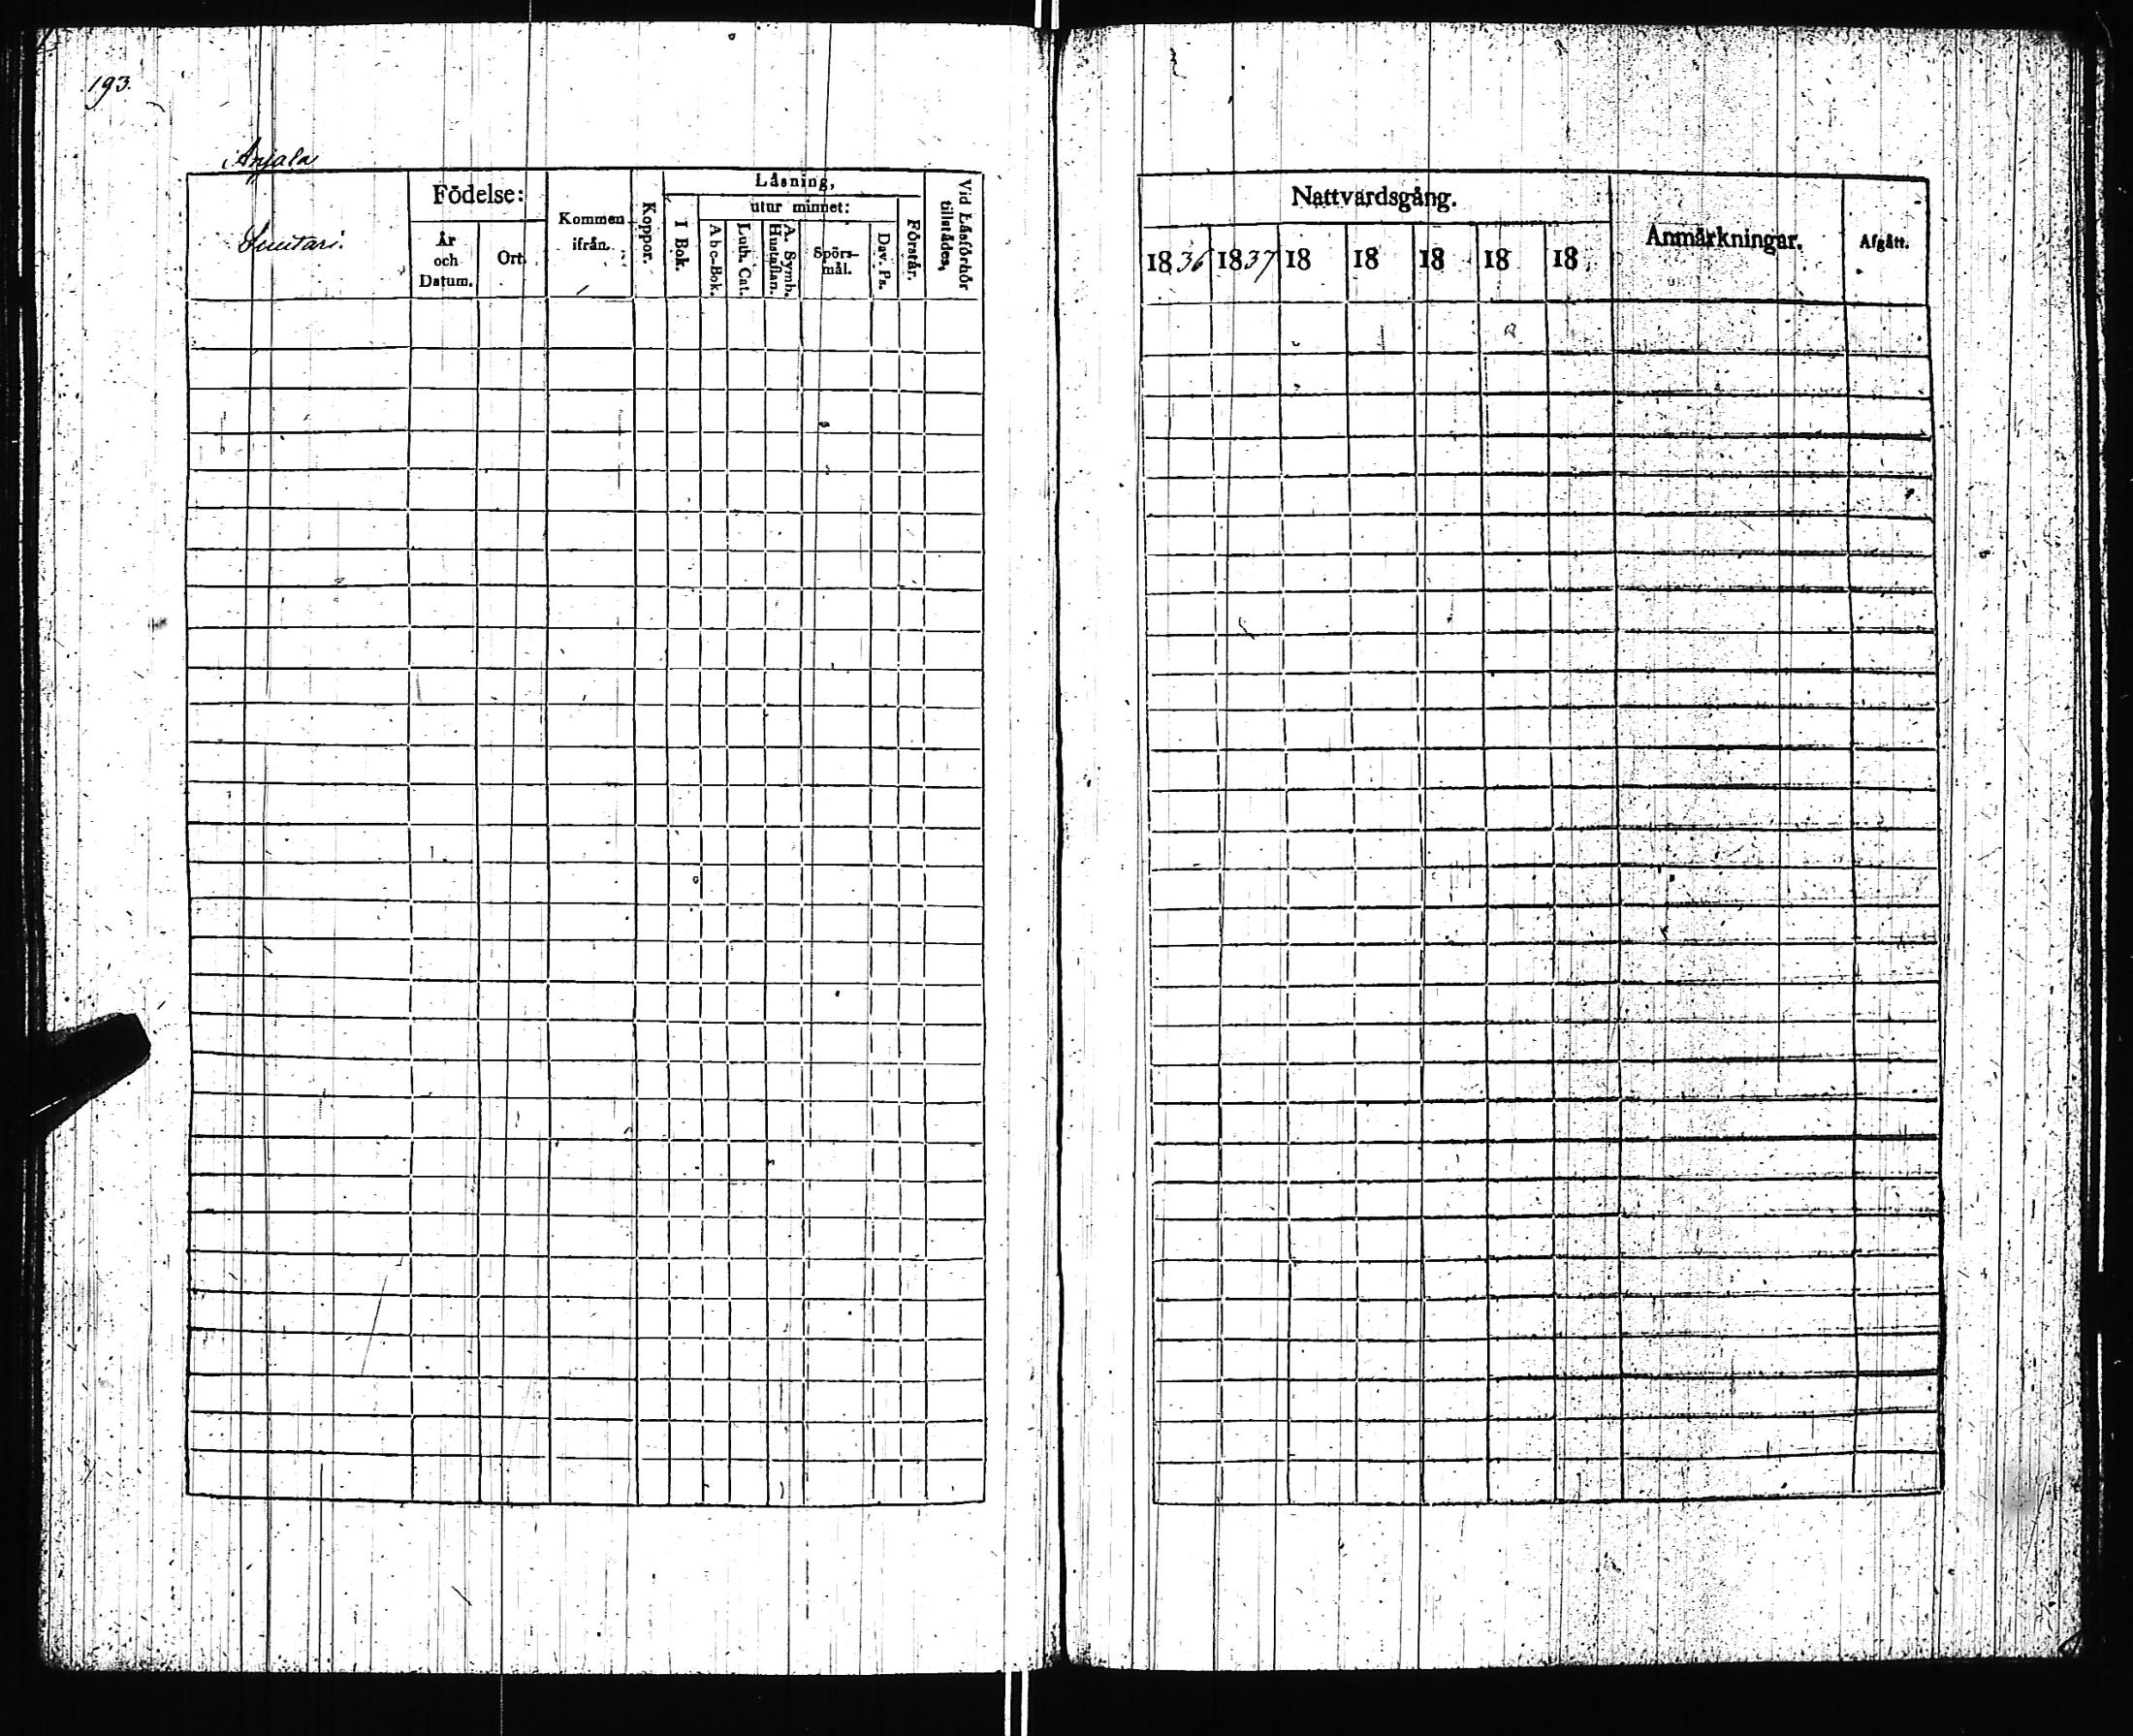 193.
Anjala
Suutari.
Födelse:
År
och
Datum.
Ort.
Kommen
ifrån.
Koppor.
Låsning,
I Bok.
utur minnet:
Abc-Bok.
Luth. Cat.
A. Symb.
Hustaflan.
Spörs-
mål.
Dav. Ps.
Förstår.
Vid Låsförhör
tillstådes,
Nattvardsgång.
1836
1837
18
18
18
18
18
Anmärkningar.
Afgått.